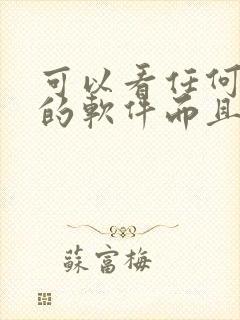 可以看任何
的軟件而且
蘇富梅